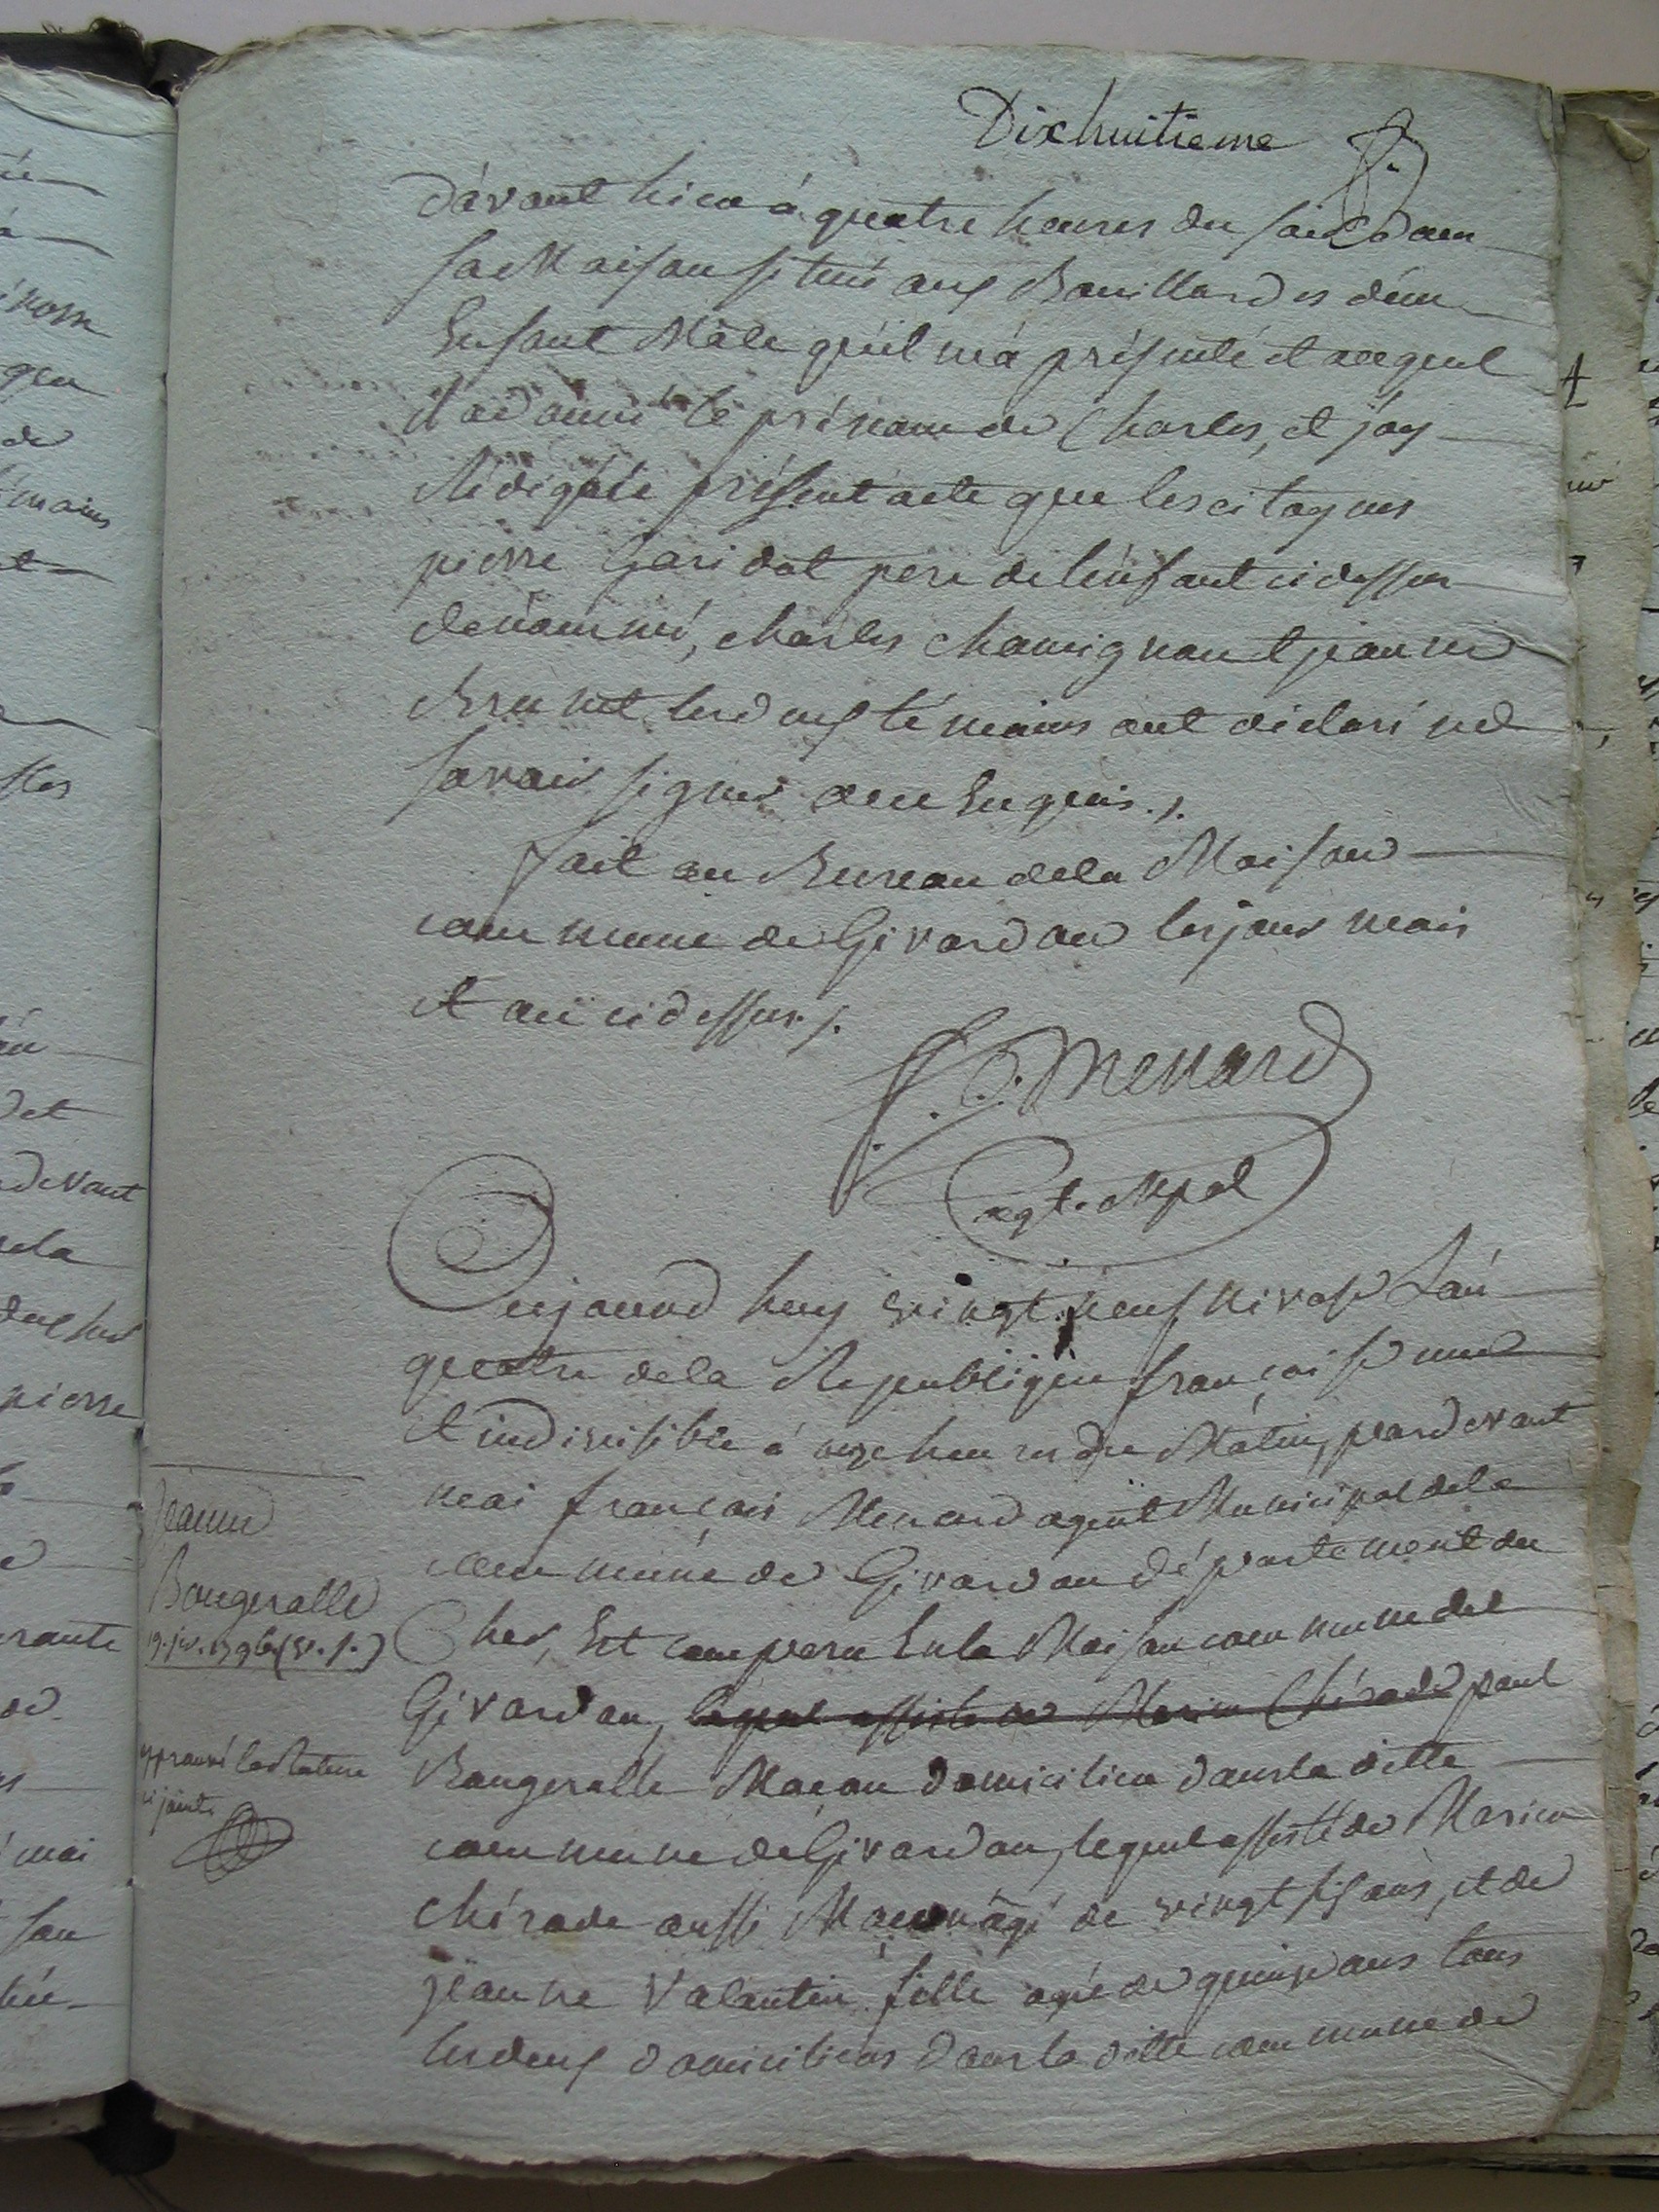 Dixhuitieme
D'avant hier á quatre heures du soir dans
sa Maison situé aux Bouillards d'un
Enfant Mâle qu'il m'a présenté et auquel
il a donné le prénom de Charles, et j'ay
Rédigé le présent acte que les citoyens
pierre Garidot pere de l'enfant ci dessus
denommé, charles chamignon et jeanne
Brunet les deux témoins ont déclaré ne
savoir signer de ce Enquis./.
fait au Bureau de la Maison
commune de Givardon les jour mois
et an ci dessus./.
Menard
agt. Mpal
Aujourd'huy vingt neuf nivose L'an
quatre de la Republique française une
et indivisible á onze heures du Matin, pardevant
moi françois Menard agent Municipal de la
commune de Givardon département du
Cher, Est comparu En la Maison commune de
Givardon, lequel assisté de Marien Chérade paul
Bougeralle Maçon domicilier dans la ditte
commune de Givardon, lequel assisté de Marien
chérade aussi Maçon âgé de vingt six ans, et de
jeanne Valentin fille agée de quinze ans tous
les deux domiciliers dans la ditte commune de
Jeanne
Bougeralle
19. jv. 1796 (v. s.)
approuvé la Rature
ci jointe